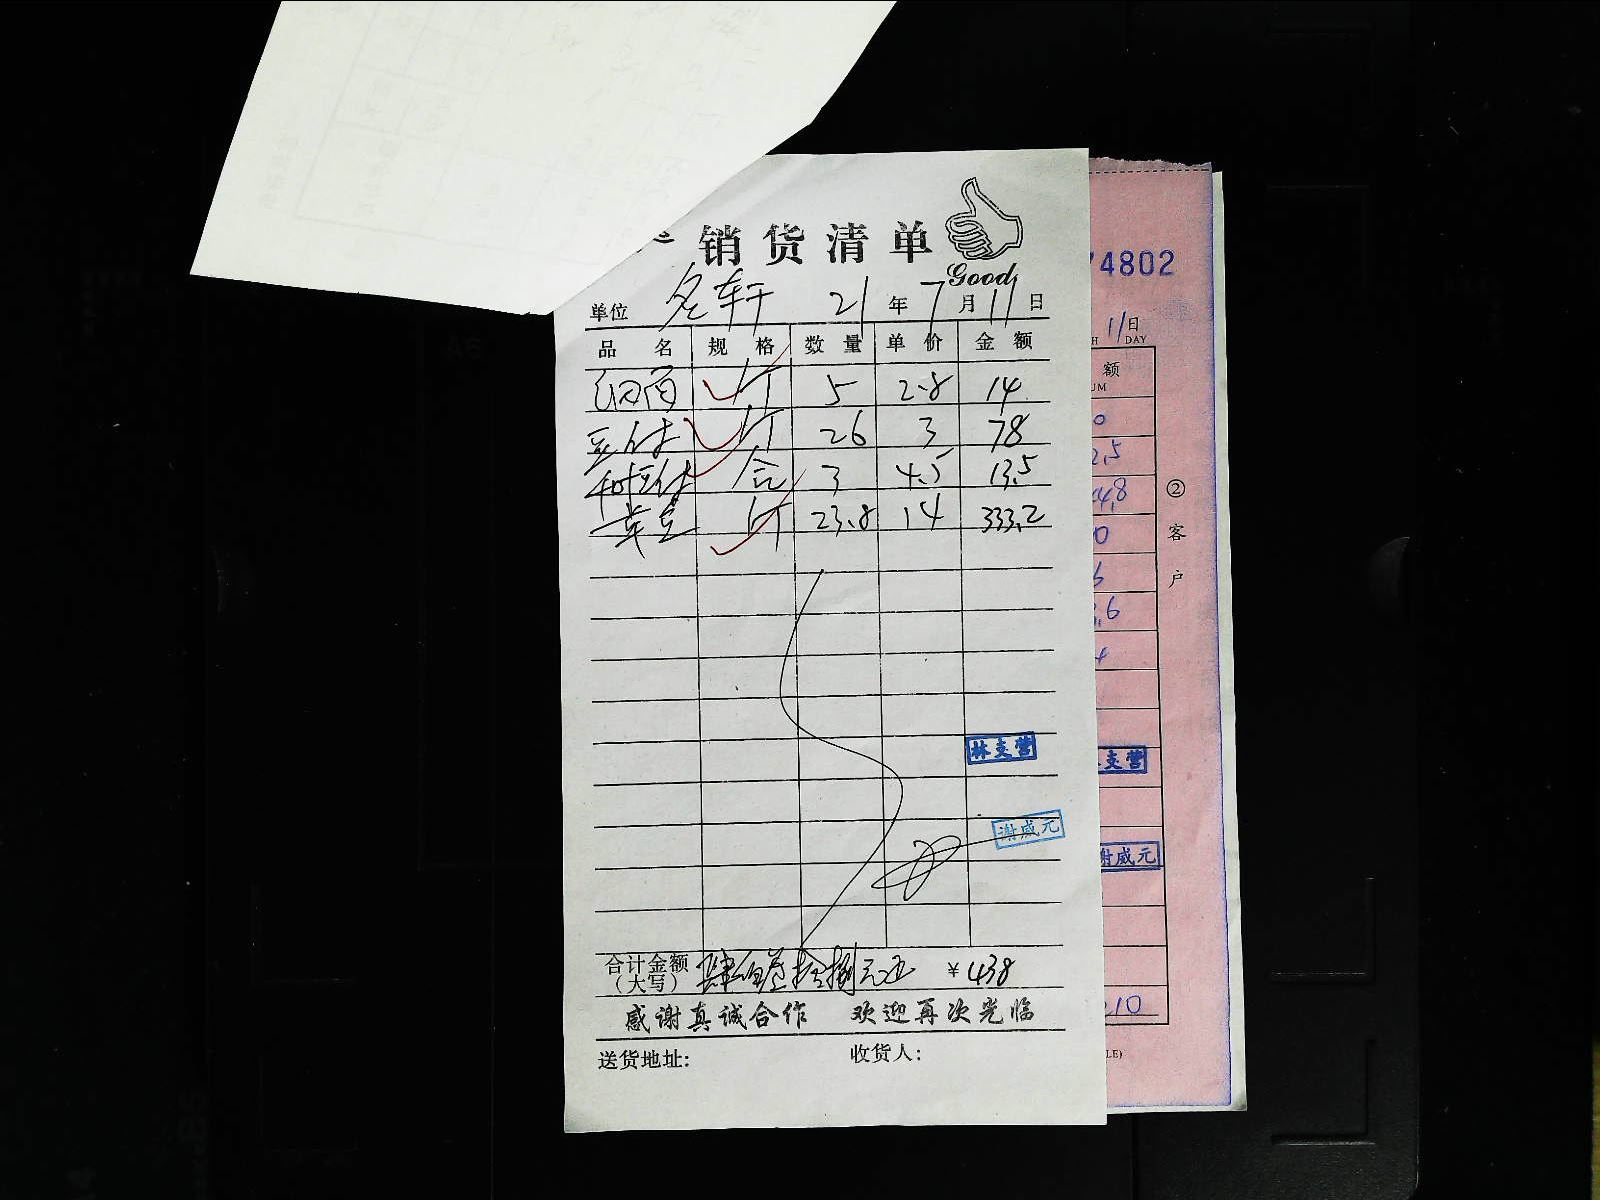 销货清单
Good
单位 名轩 21年7月11日
品名 规格 数量 单价 金额
斤 5 2.8 14
豆付 斤 26 3 78
合 3 4.5 13.5
斤 23.8 14 333.2
林支营
谢威元
合计金额（大写） 肆佰叁拾捌元正 ¥438
感谢真诚合作 欢迎再次光临
送货地址: 收货人:
4802
11日
DAY
额
UM
0
2.5
4.8
0
6
.6
支营
谢威元
210
LE)
②客户